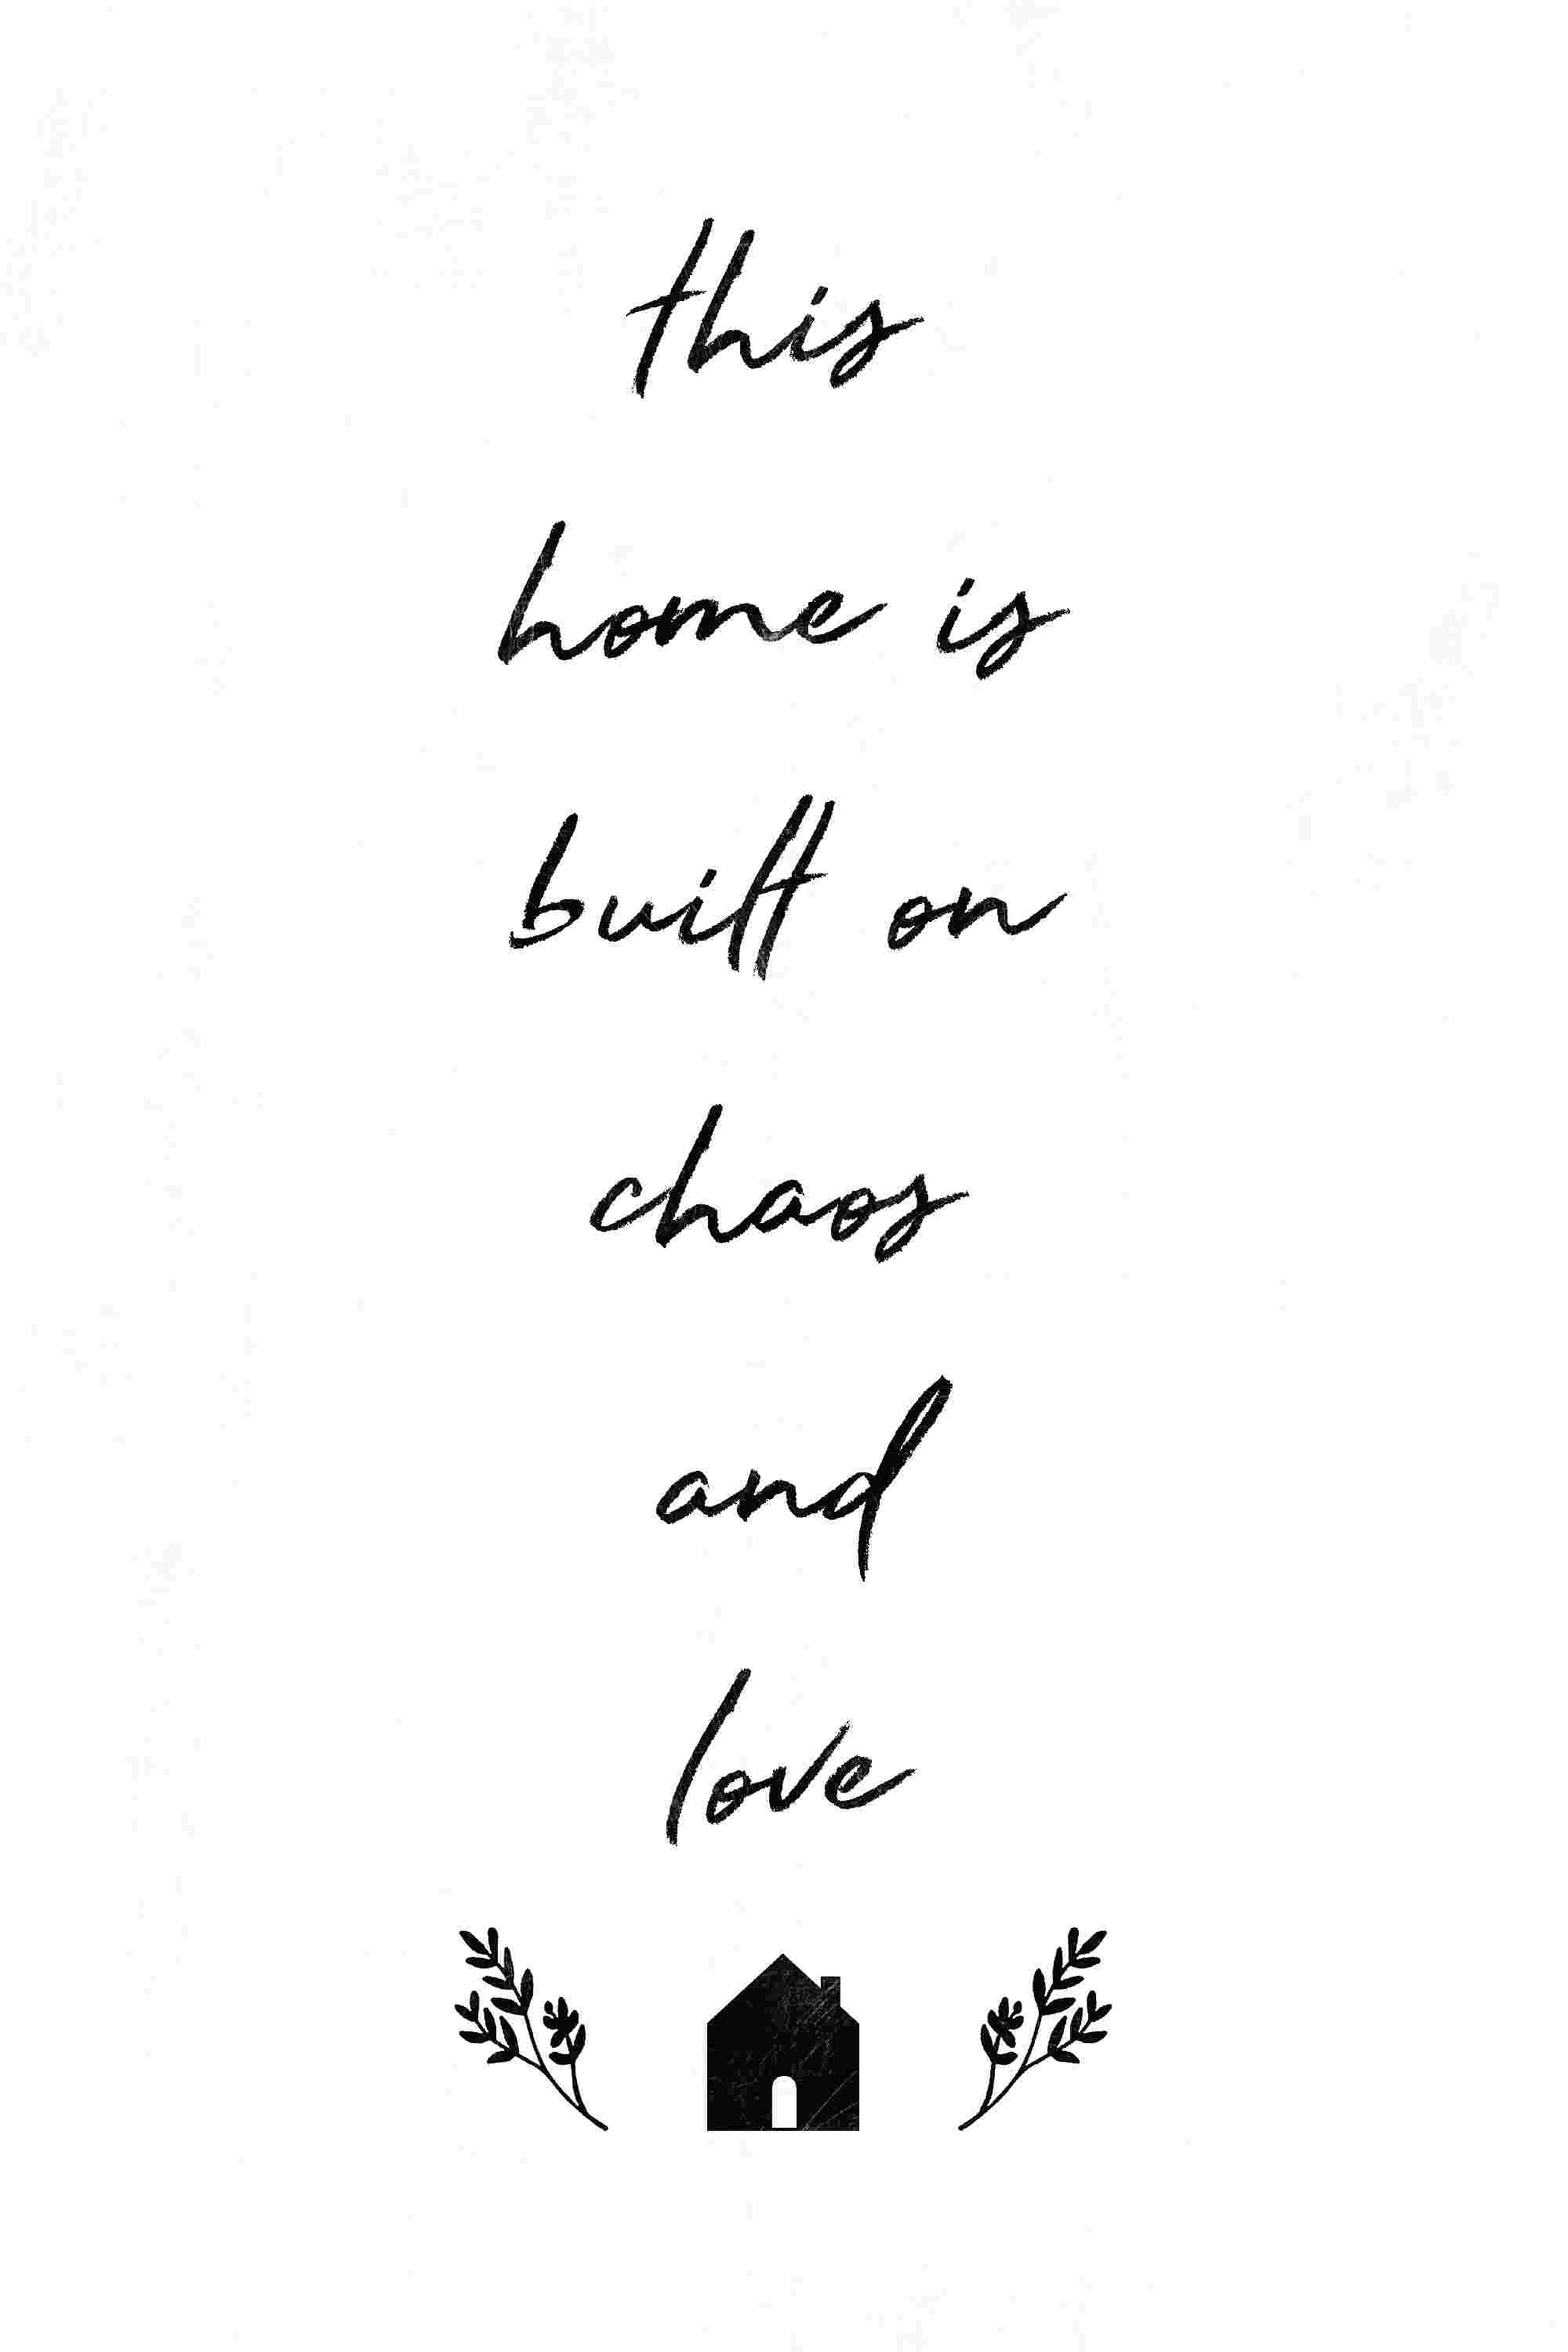 this
home is
built on
chaos
and
love